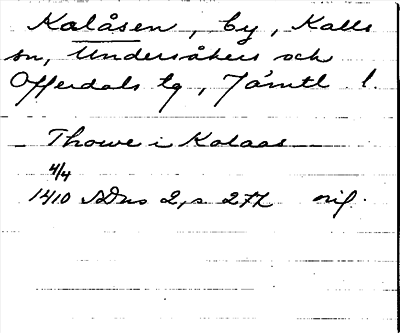 Kolåsen, by, Kalls
sn, Undersåkers och
Offerdals tg, Jämtl. l.
Thowe i Kolaas
4/4
1410 SDns 2, s 274 orig.